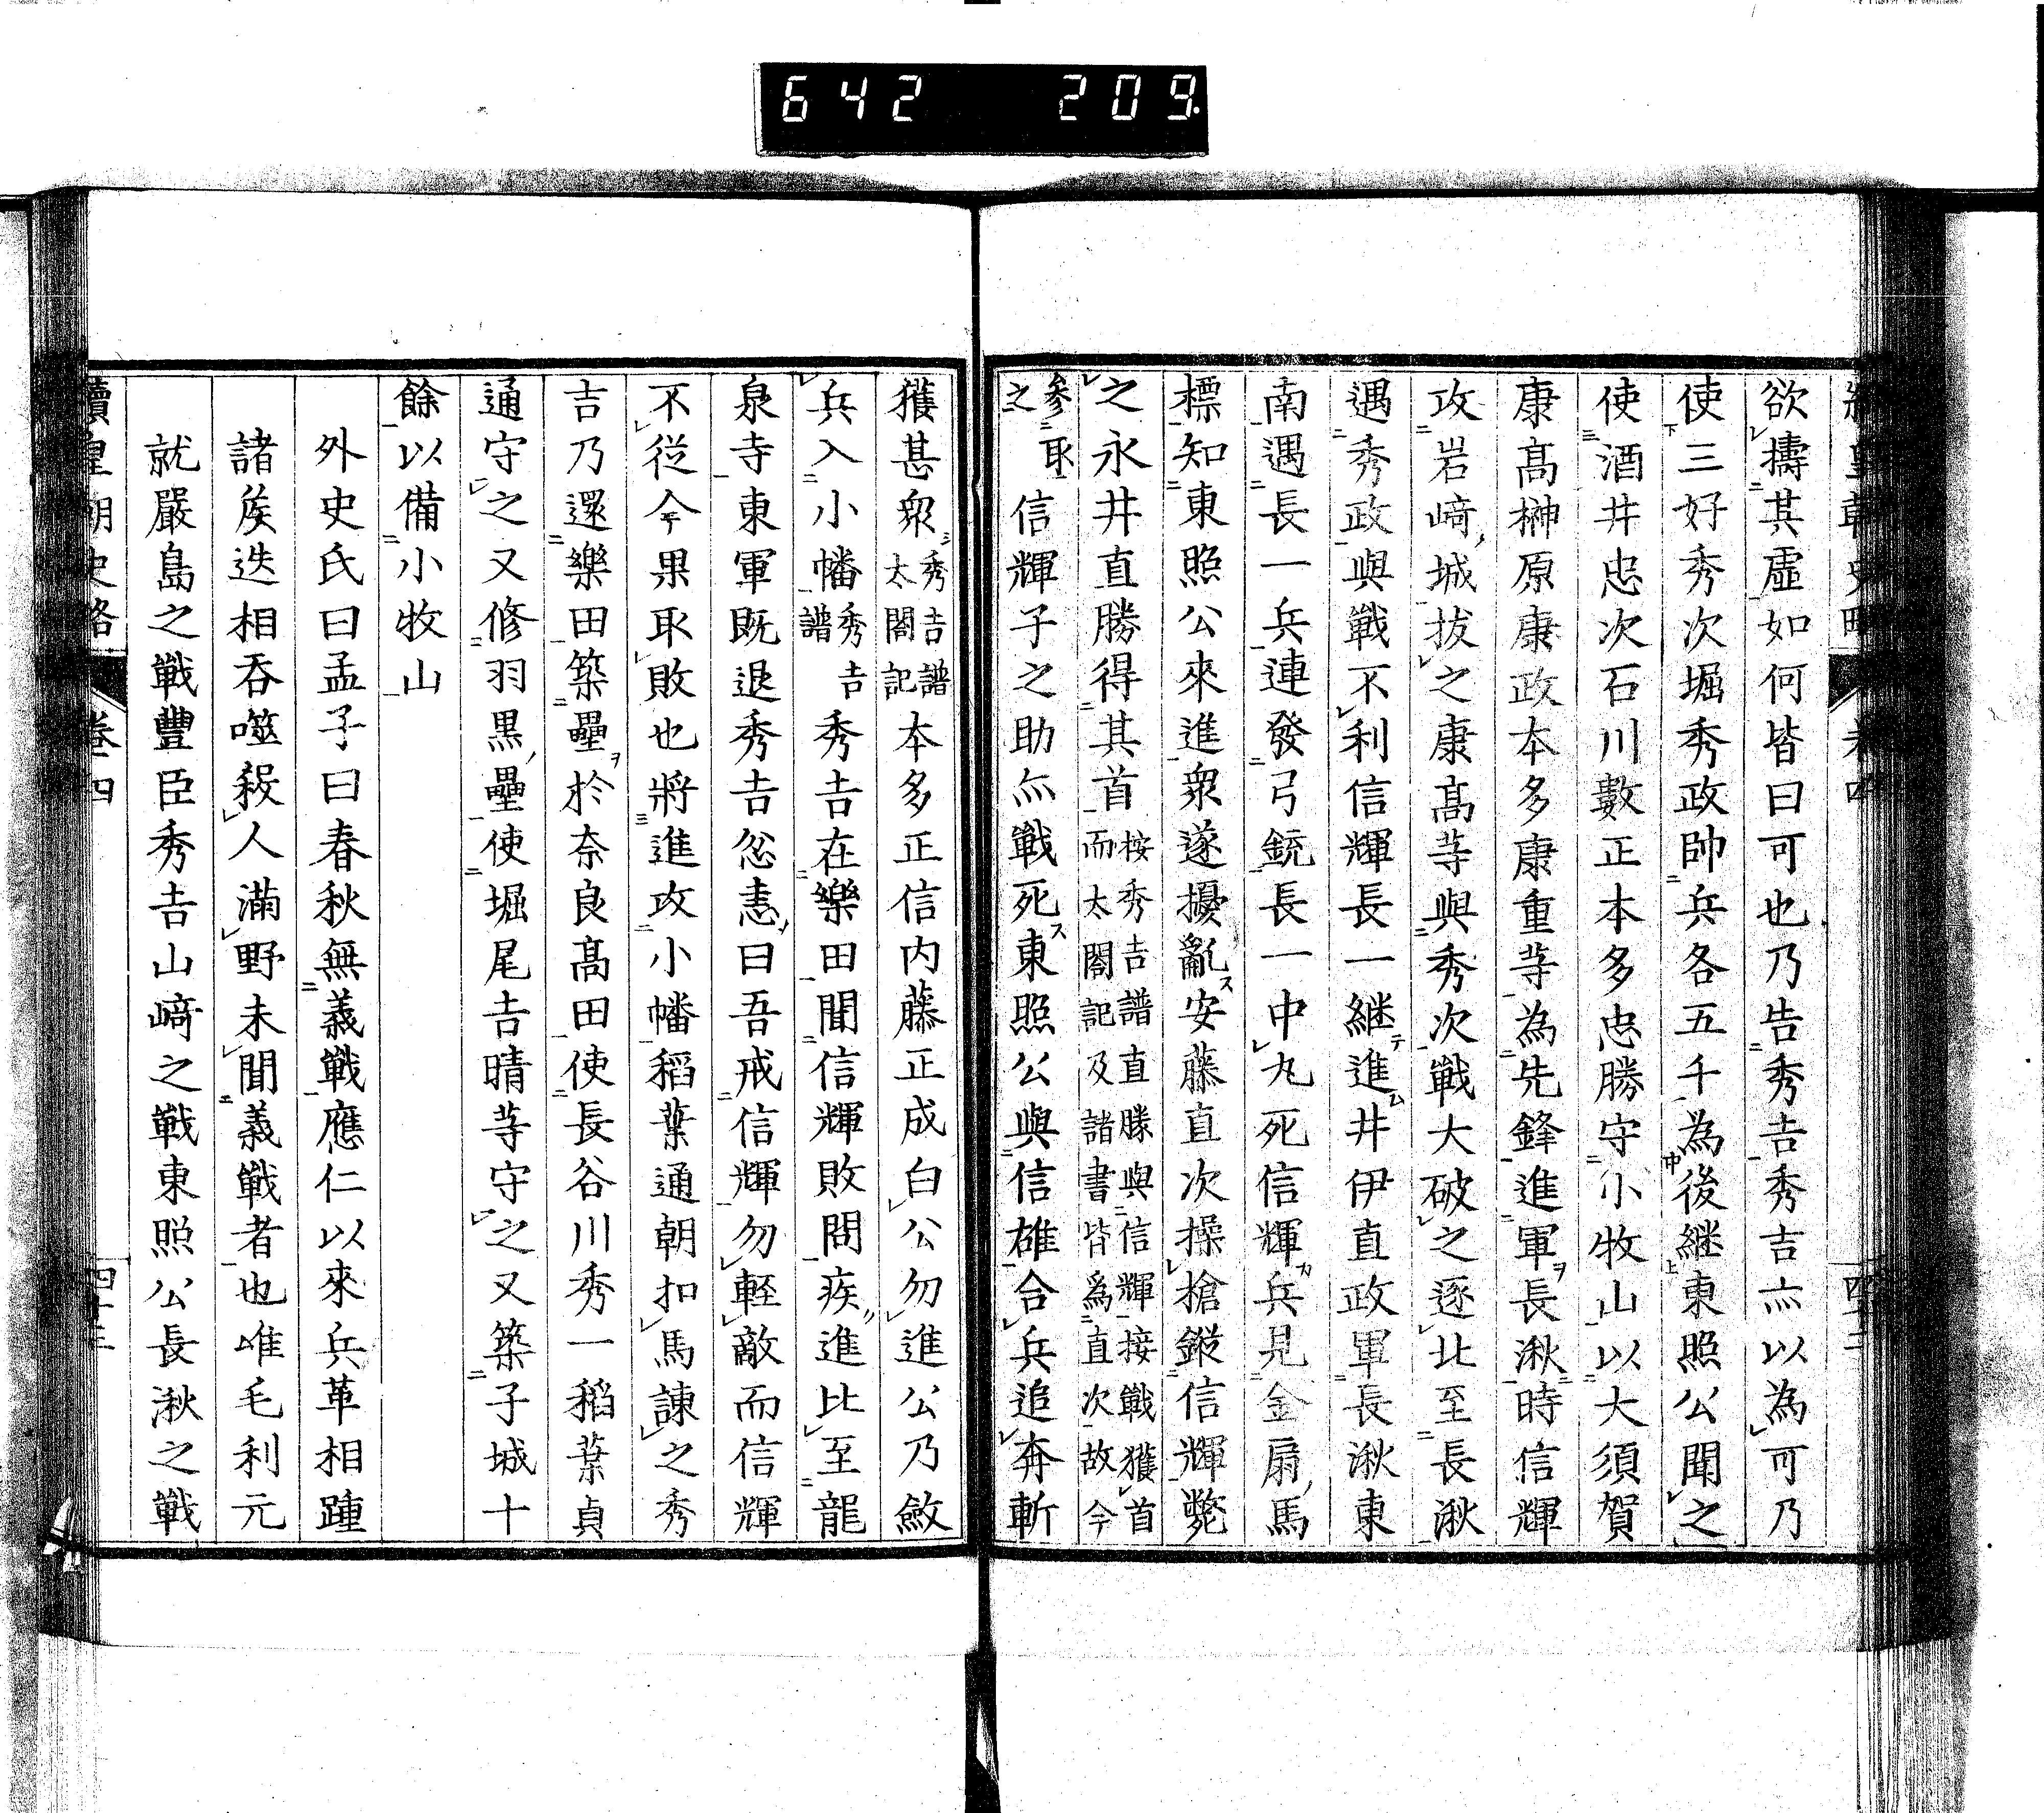 642 209
欲擣其虛如何皆曰可也乃告秀吉秀吉亦以為可乃
使三好秀次堀秀政帥兵各五千為後継東照公聞之
使酒井忠次石川數正本多忠勝守小牧山以大須賀
康髙榊原康政本多康重等為先鋒進軍長湫時信輝
攻岩﨑城拔之康髙等與秀次戰大破之逐北至長湫
遇秀政與戰不利信輝長一継進井伊直政軍長湫東
南遇長一兵連發弓銃長一中丸死信輝兵見金扇馬
標知東照公來進衆遂擾亂安藤直次操槍鏦信輝斃
之永井直勝得其首
按秀吉譜直勝與信輝接戰獲首
而太閤記及諸書皆爲直次故今
參取
之
信輝子之助亦戰死東照公與信雄合兵追奔斬
獲甚衆
秀吉譜
太閤記
本多正信内藤正成白公勿進公乃斂
兵入小幡
秀吉
譜
秀吉在樂田聞信輝敗問疾進比至龍
泉寺東軍既退秀吉忿恚曰吾戒信輝勿輕敵而信輝
不從今果取敗也將進攻小幡稻葉通朝扣馬諫之秀
吉乃還樂田築壘於奈良髙田使長谷川秀一稻葉貞
通守之又修羽黒壘使堀尾吉晴等守之又築子城十
餘以備小牧山
外史氏曰孟子曰春秋無義戰應仁以來兵革相踵
諸矦迭相吞噬殺人滿野未聞義戰者也唯毛利元
就嚴島之戰豐臣秀吉山﨑之戰東照公長湫之戰
續皇朝史略 卷四 四十三